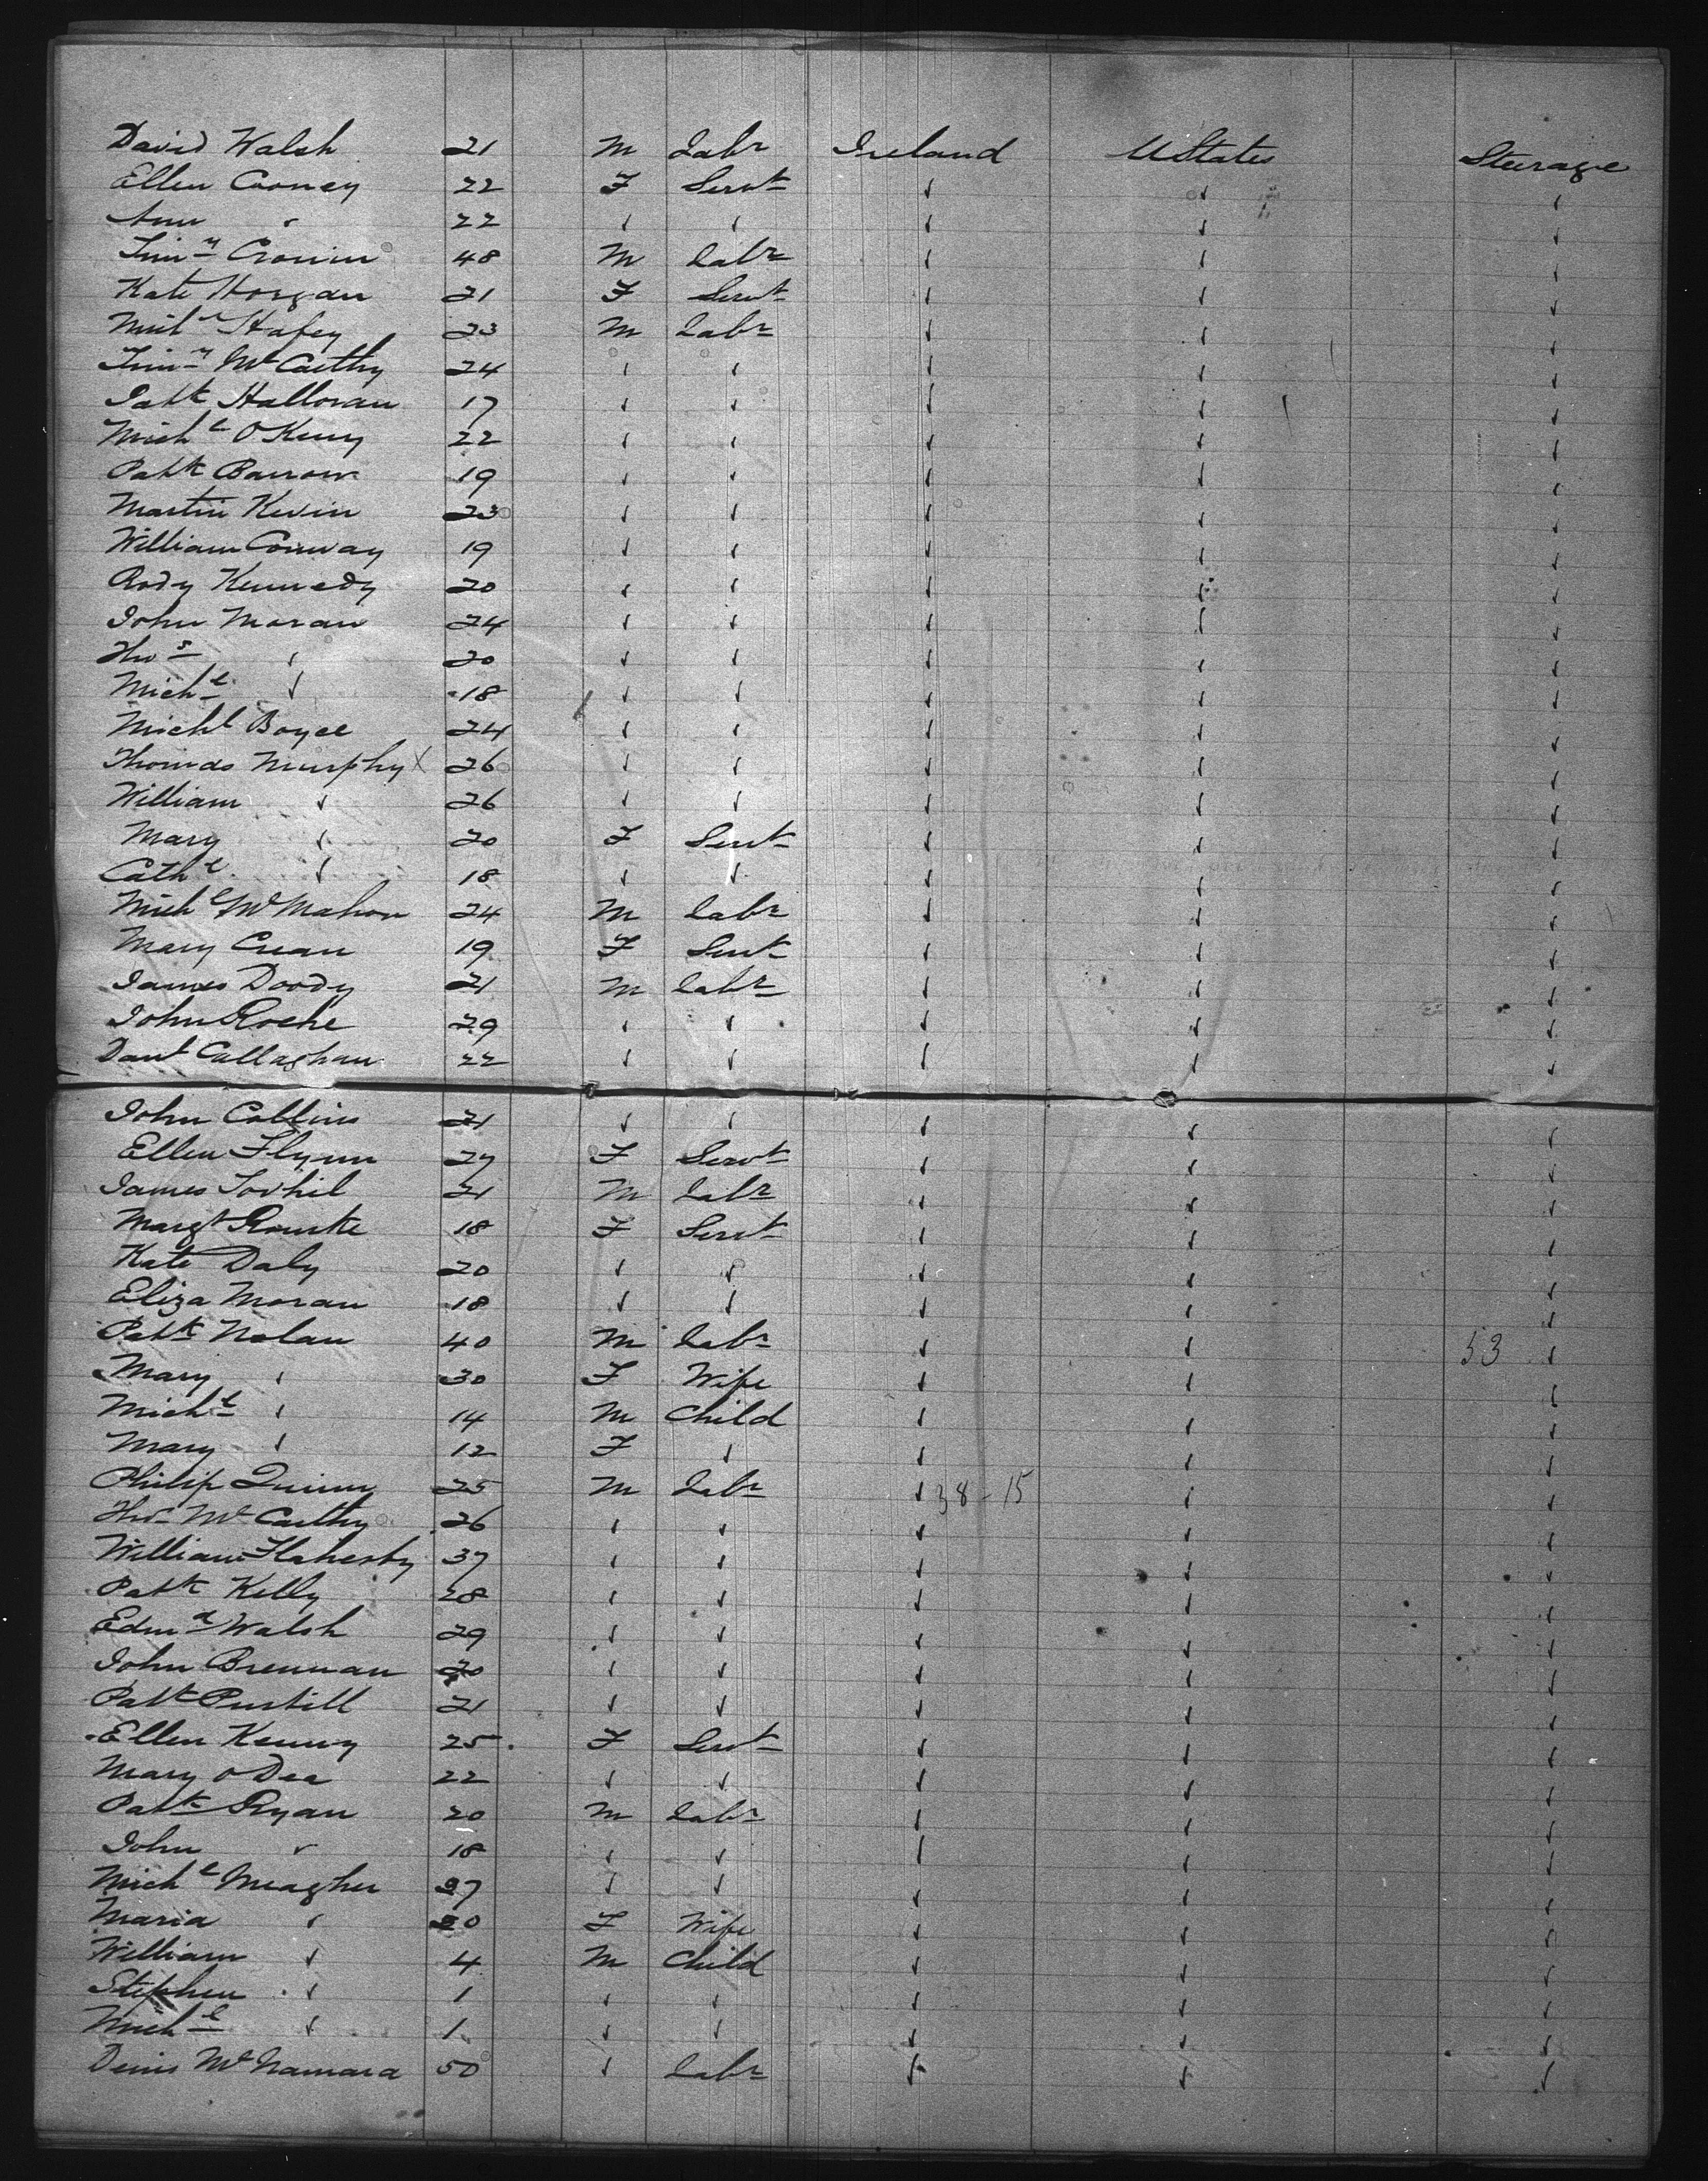 David Walsh 21 M Labr Ireland UStates Steerage
Ellen Cooney 22 F Servt ✓ ✓ ✓
Ann ✓ 22 ✓ ✓ ✓ ✓ ✓
Timy Cronin 48 M Labr ✓ ✓ ✓
Kate Horgan 21 F Servt ✓ ✓ ✓
Hafey 23 M Labr ✓ ✓ ✓
Timy McCarthy 24 ✓ ✓ ✓ ✓ ✓
Patk Halloran 17 ✓ ✓ ✓ ✓ ✓
Michl O 22 ✓ ✓ ✓ ✓ ✓
Patk Barrow 19 ✓ ✓ ✓ ✓ ✓
Martin Kevin 23 ✓ ✓ ✓ ✓ ✓
William Conway 19 ✓ ✓ ✓ ✓ ✓
Rody Kennedy 20 ✓ ✓ ✓ ✓ ✓
John Moran 24 ✓ ✓ ✓ ✓ ✓
Thos ✓ 20 ✓ ✓ ✓ ✓ ✓
Michl ✓ 18 ✓ ✓ ✓ ✓ ✓
Michl Boyce 24 ✓ ✓ ✓ ✓ ✓
Thomas Murphy X 26 ✓ ✓ ✓ ✓ ✓
William ✓ 26 ✓ ✓ ✓ ✓ ✓
Mary ✓ 20 F Servt ✓ ✓ ✓
Cathe ✓ 18 ✓ ✓ ✓ ✓ ✓
Michl McMahon 24 M Labr ✓ ✓ ✓
Mary Crean 19 F Servt ✓ ✓ ✓
James Doody 21 M Labr ✓ ✓ ✓
John Roche 29 ✓ ✓ ✓ ✓ ✓
Danl Callaghan 22 ✓ ✓ ✓ ✓ ✓
John Collins 21 ✓ ✓ ✓ ✓ ✓
Ellen Flynn 27 F Servt ✓ ✓ ✓
James 21 M Labr ✓ ✓ ✓
Margt Rourke 18 F Servt ✓ ✓ ✓
Kate Daly 20 ✓ ✓ ✓ ✓ ✓
Eliza Moran 18 ✓ ✓ ✓ ✓ ✓
Patk Nolan 40 M Labr ✓ ✓ 53 ✓
Mary ✓ 30 F Wife ✓ ✓ ✓
Michl ✓ 14 M Child ✓ ✓ ✓
Mary ✓ 12 F ✓ ✓ ✓ ✓
Philip Quinn 25 M Labr ✓ 38-15 ✓ ✓
Thos McCarthy 26 ✓ ✓ ✓ ✓ ✓
William Flaherty 37 ✓ ✓ ✓ ✓ ✓
Patk Kelly 28 ✓ ✓ ✓ ✓ ✓
Edmd Walsh 29 ✓ ✓ ✓ ✓ ✓
John Brennan 20 ✓ ✓ ✓ ✓ ✓
Patk Purtill 21 ✓ ✓ ✓ ✓ ✓
Ellen Kenny 25 F Servt ✓ ✓ ✓
Mary O Dea 22 ✓ ✓ ✓ ✓ ✓
Patk Ryan 20 M Labr ✓ ✓ ✓
John ✓ 18 ✓ ✓ ✓ ✓ ✓
Michl Meagher 27 ✓ ✓ ✓ ✓ ✓
Maria ✓ 20 F Wife ✓ ✓ ✓
William ✓ 4 M Child ✓ ✓ ✓
Stephen ✓ 1 ✓ ✓ ✓ ✓ ✓
Michl ✓ 1 ✓ ✓ ✓ ✓ ✓
Denis McNamara 50 ✓ Labr ✓ ✓ ✓